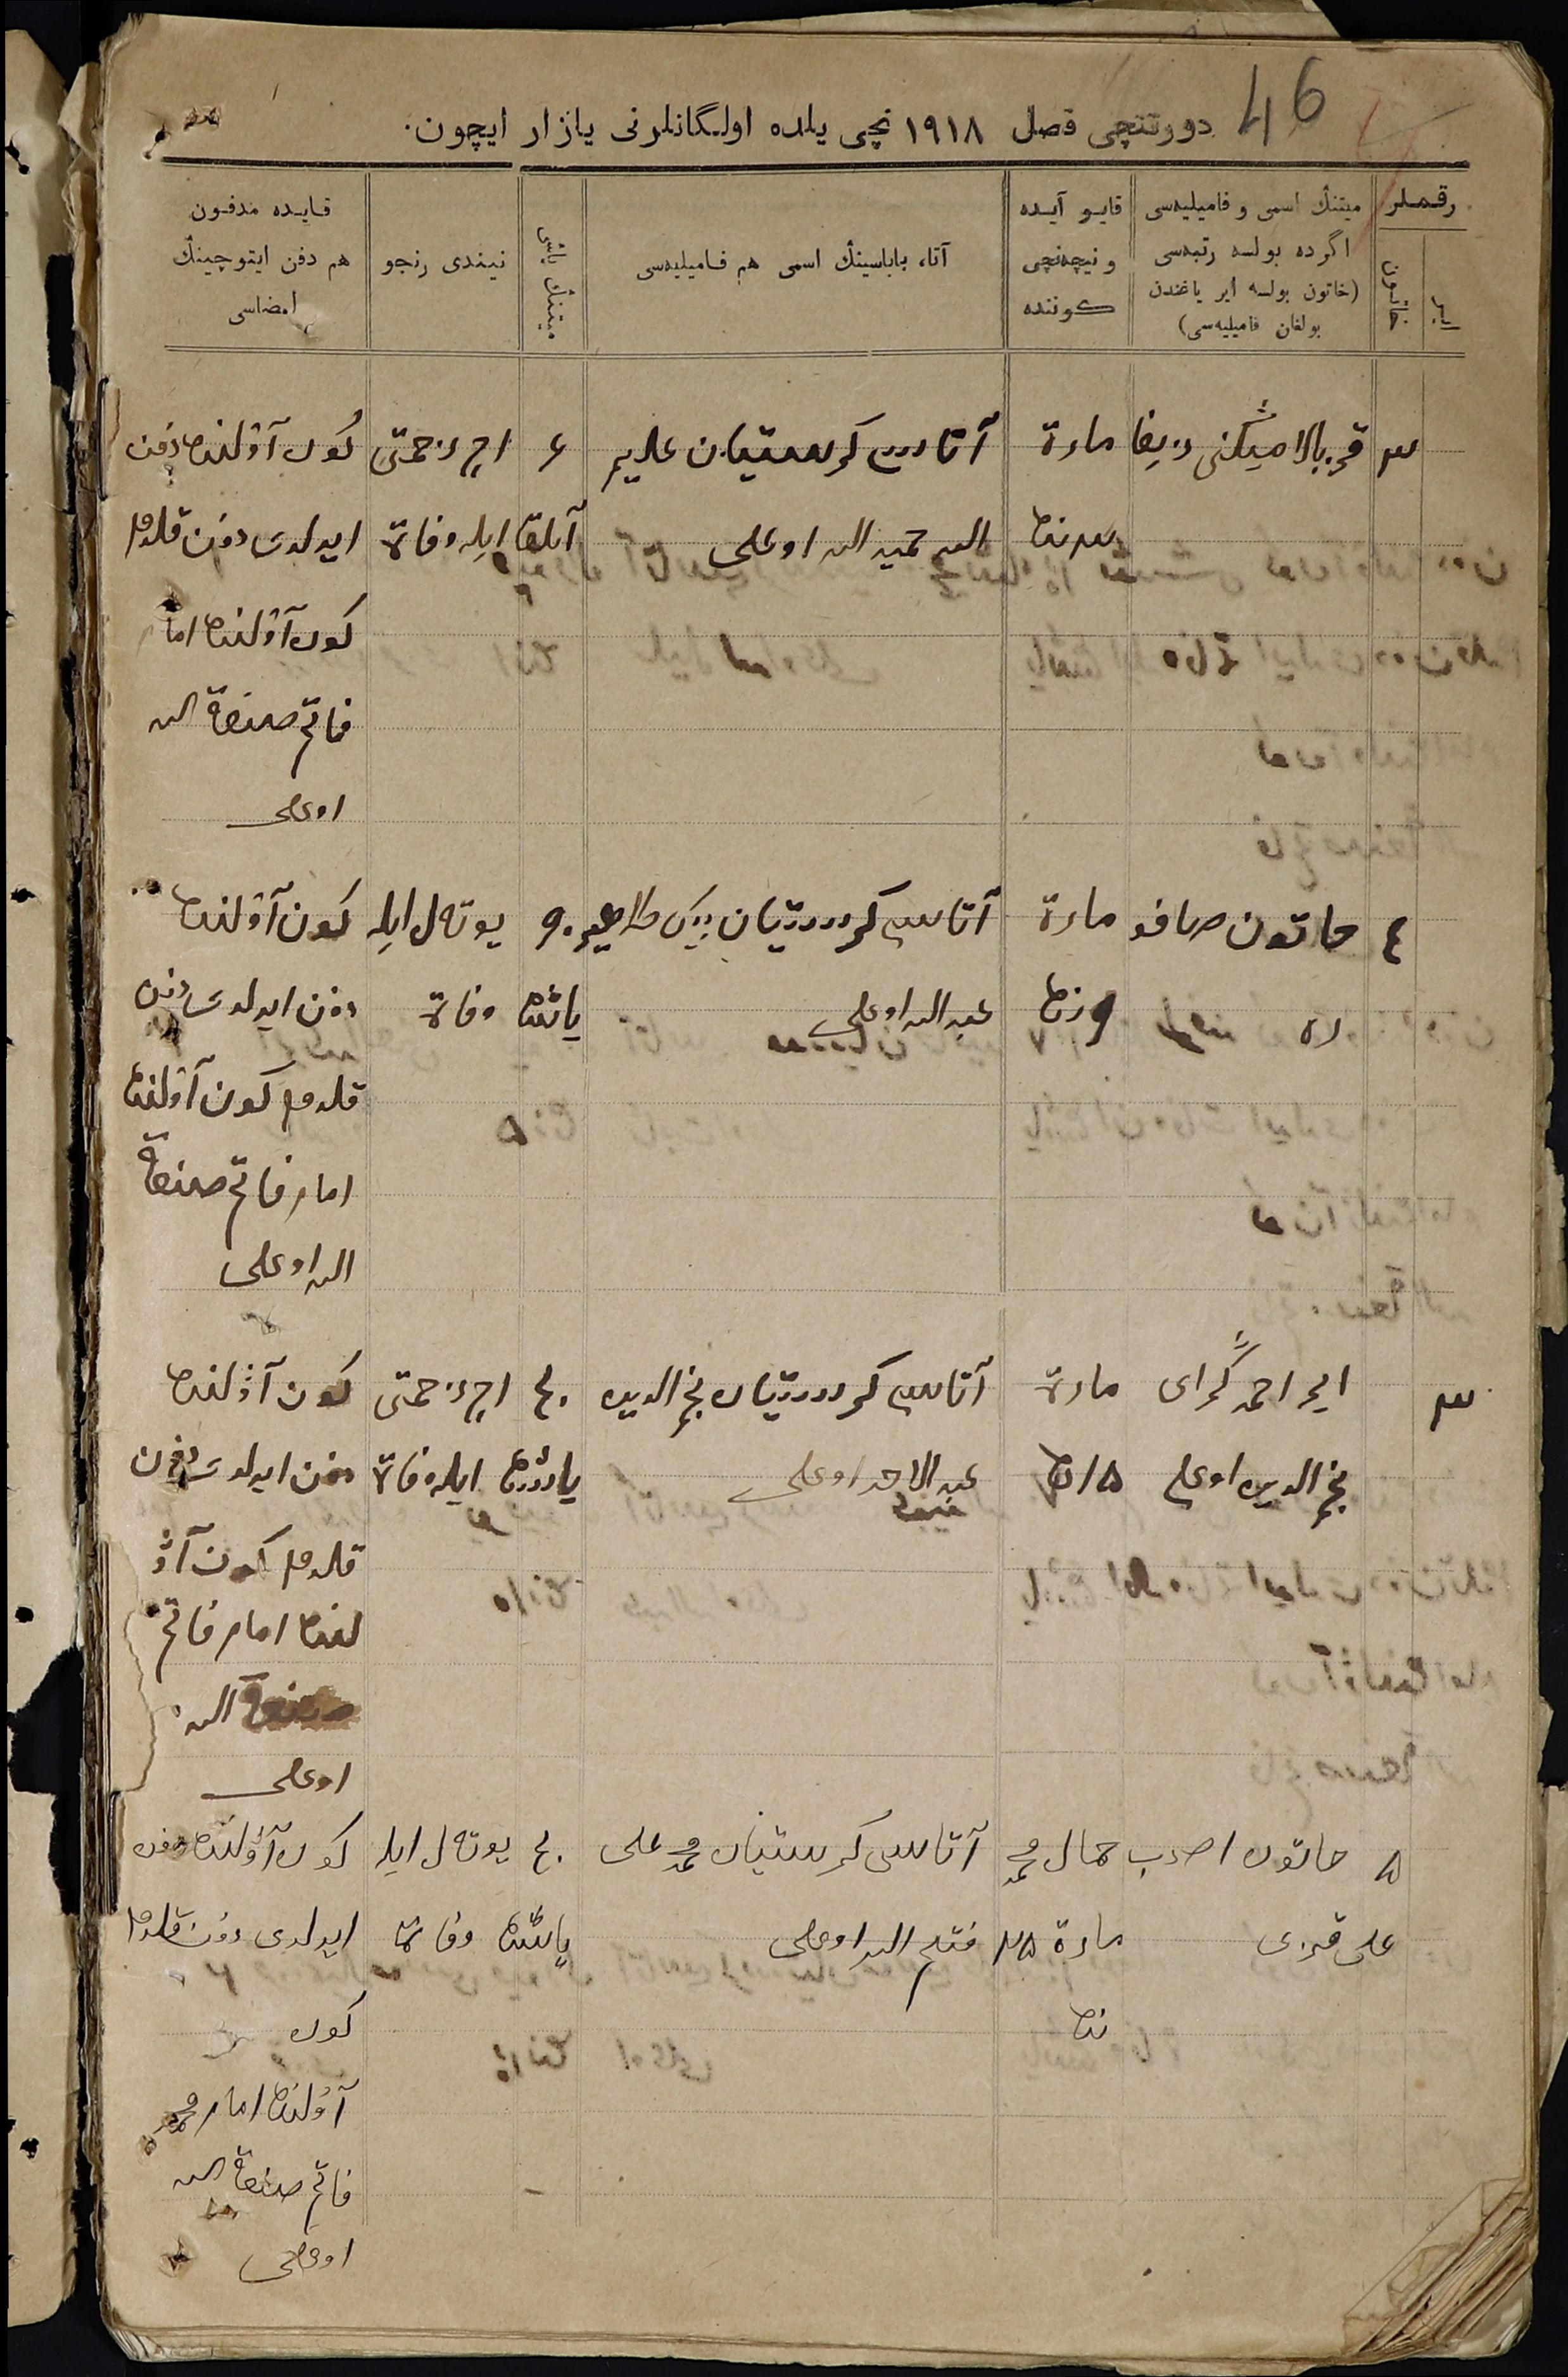 46
دورتنچی فصل ۱۹۱۸ نچی یلده اولگانلرنی یازار ایچون.
رقملر
ایر
خاتون
میتنڭ اسمی و فامیلیه‌سی
اگرده بولسه رتبه‌سی
(خاتون بولسه ایر یاغندن
بولغان فامیلیه‌سی)
قایو آیده
و نیچه‌نچی
کوننده
آتا، باباسینڭ اسمی هم فامیلیه‌سی
میتنڭ یاشی
نیندی رنجو
قایده مدفون
هم دفن ایتوچینڭ
امضاسی
۳ قز بالا مارت آتاسی کرستیان علیم ۶ اچ زحمتی کون آولنده دفن
الله حمید الله اوغلی آیلق ایله وفات ایدلدی دفن قلدم
کون آولنده امام
فاتح صنعة الله
اوغلی
٤ خاتون مارت آتاسی کرستیان ۹۰ یوتل ایله کون آولنده
۹ نده عبد الله اوغلی یاشنده وفات دفن ایدلدی دفن
قلدم کون آولنده
امام فاتح صنعة
الله اوغلی
۳ ایر احمد گرای مارت آتاسی کرستیان نجم الدین ۲۰ اچ زحمتی کون آولنده
نجم الدین اوغلی ۱۵ نده عبد الاحد اوغلی یاشنده ایله وفات دفن ایدلدی دفن
قلدم کون آو
لنده امام فاتح
صنعة الله
اوغلی
۵ خاتون جمال محمد آتاسی کرستیان محمد علی ۲۰ یوتل ایله کون آولنده دفن
علی قزی مارت ۲۵ فتح الله اوغلی یاشنده وفات ایدلدی دفن قلدم
نده کون
آولنده امام محمد
فاتح صنعة الله
اوغلی